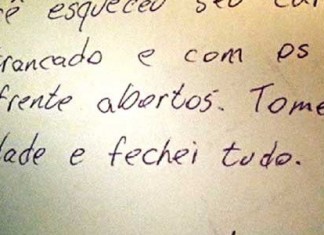 ê esqueceu seu car
rancado e com os
frente abertos. Tome
dade e fechei tudo.